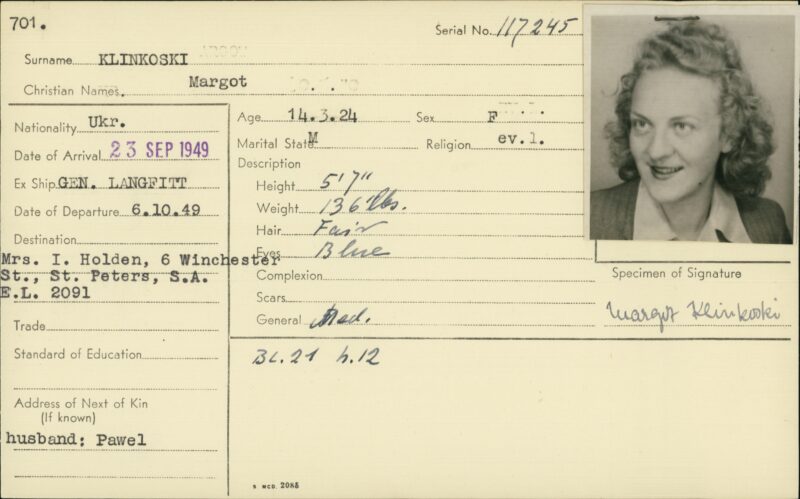 701.
Serial No. 117245
Surname KLINKOSKI
Christian Names. Margot
Nationality Ukr.
Date of Arrival 23 SEP 1949
Ex Ship GEN. LANGFITT
Date of Departure 6.10.49
Destination
Mrs. I. Holden, 6 Winchester
St., St. Peters, S.A.
E.L. 2091
Trade
Standard of Education
Address of Next of Kin
(If known)
husband: Pawel
Age 14.3.24 Sex F
Marital State M Religion ev.l.
Description
Height 5'7"
Weight 136 lbs.
Hair Fair
Eyes Blue
Complexion
Scars
General Med.
BL.21 h.12
Specimen of Signature
Margot Klinkoski
S MCD. 2085